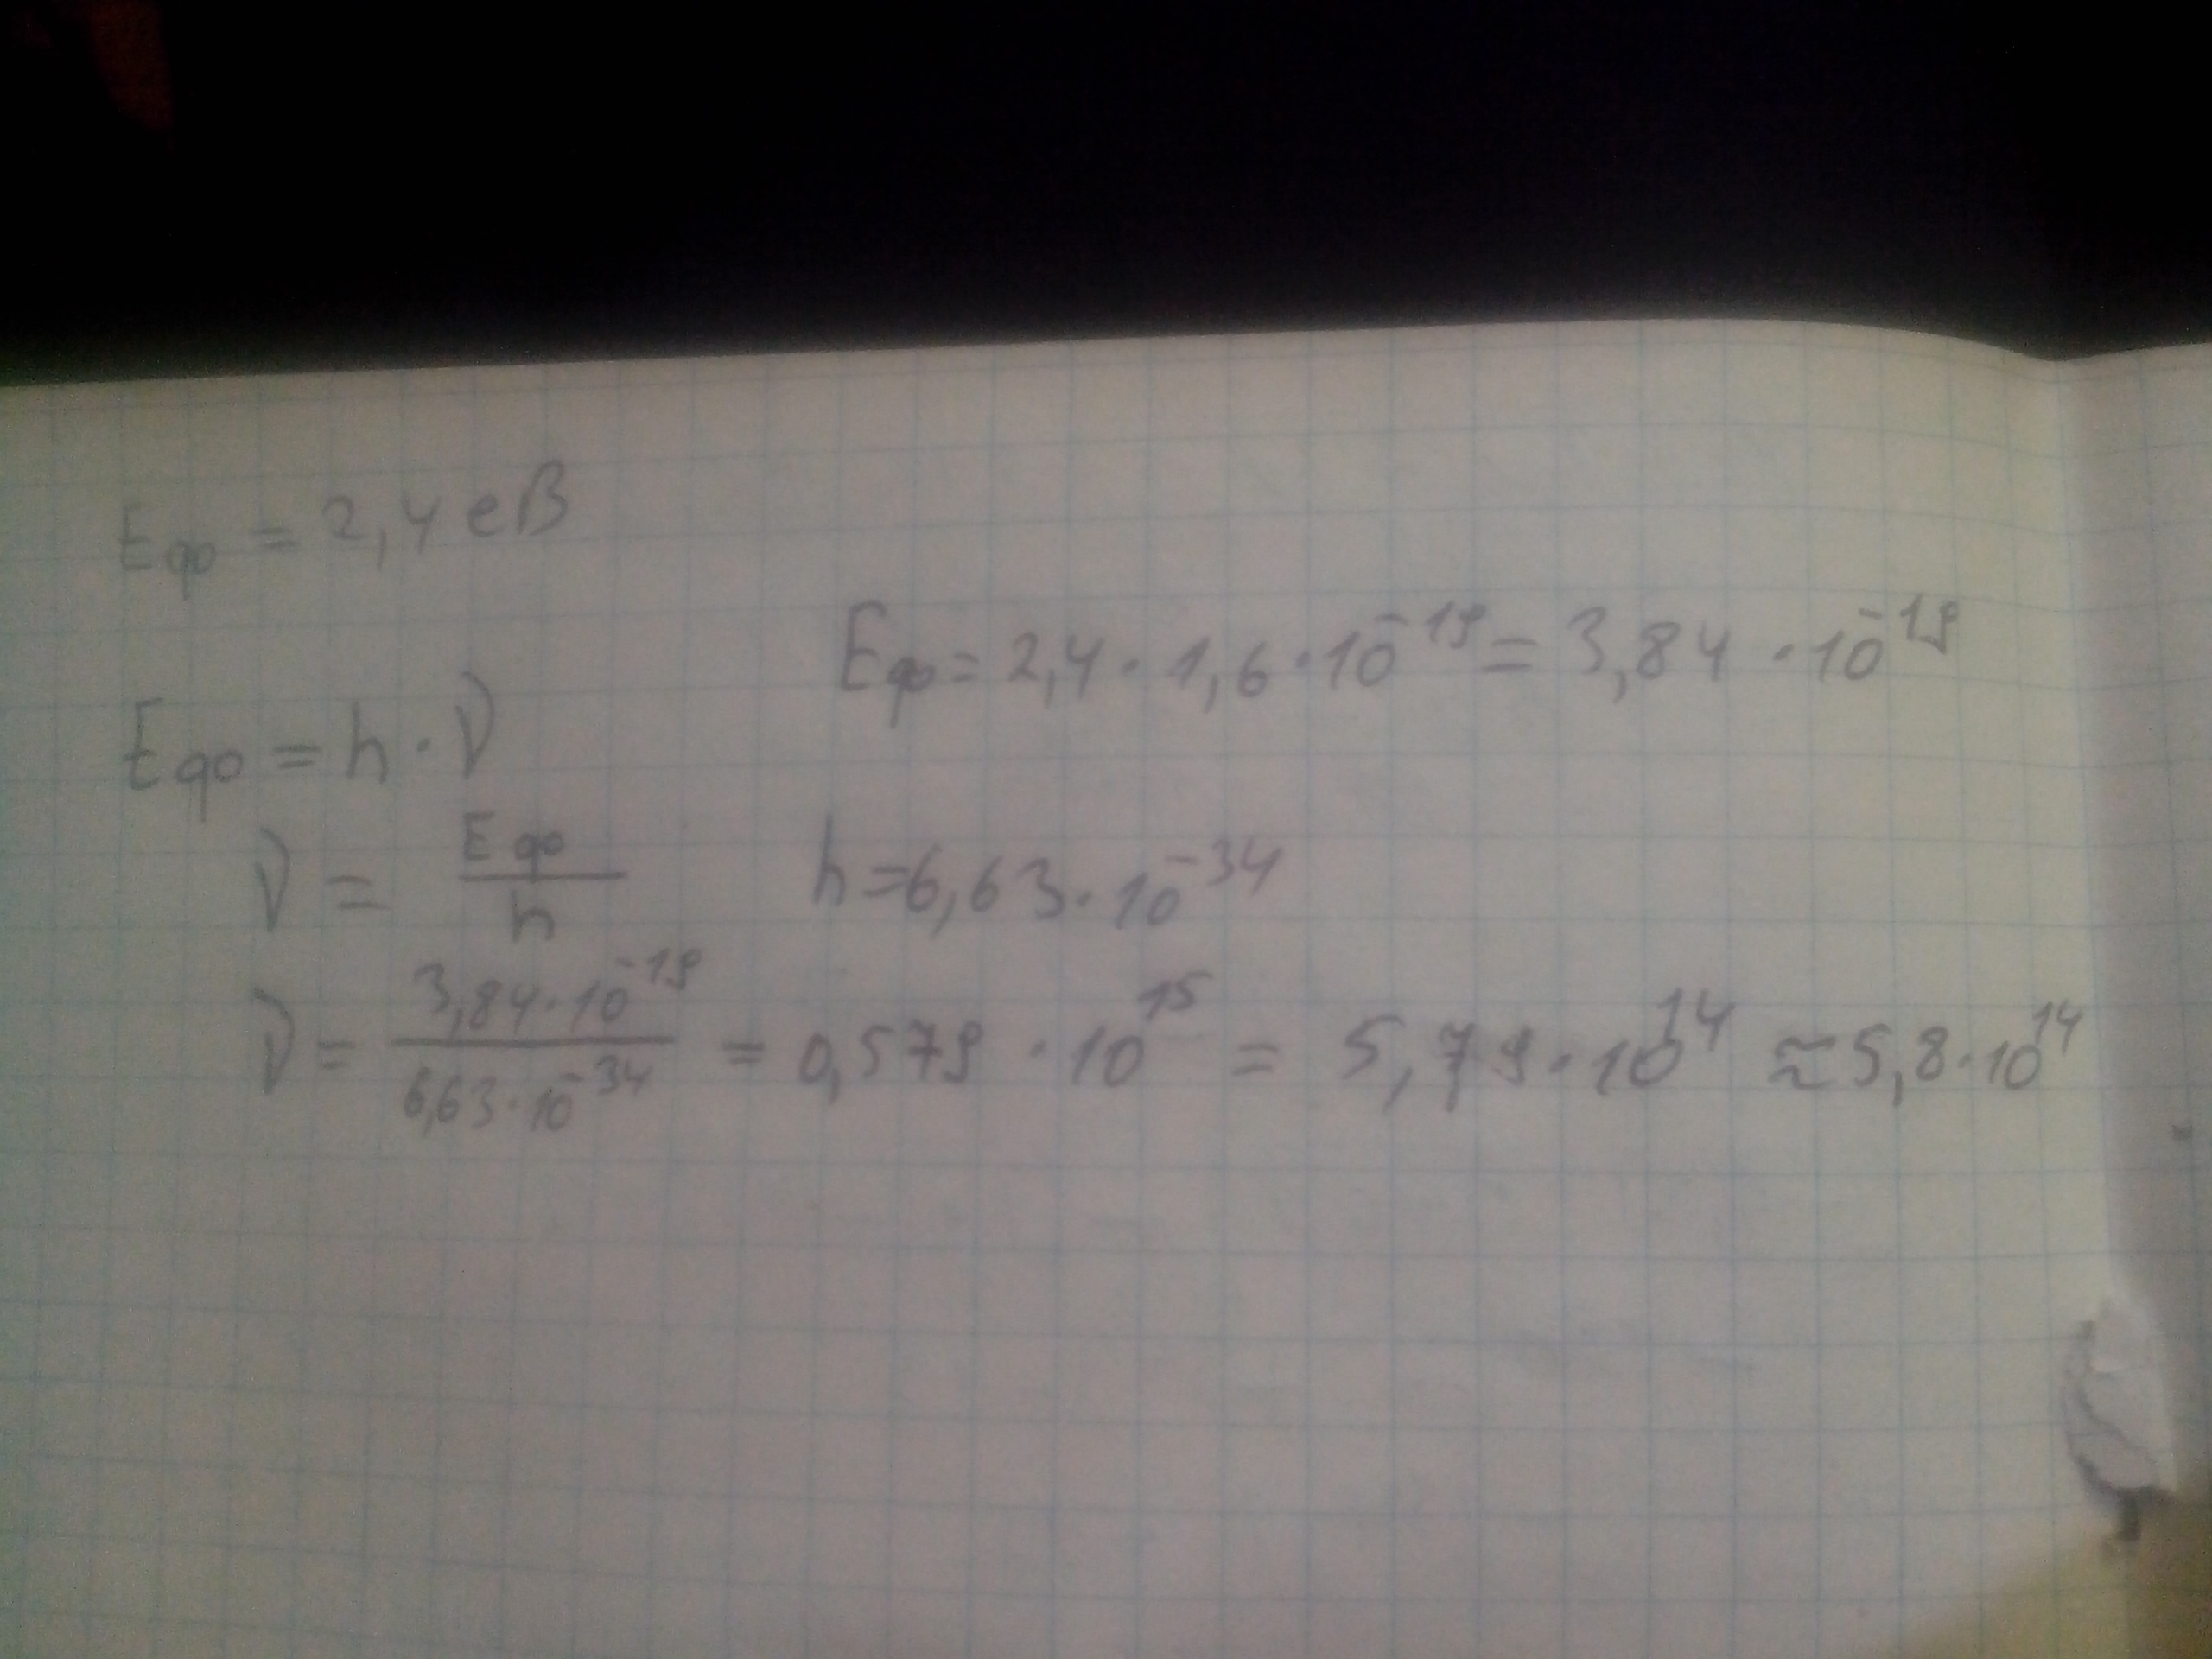 Eφ = 2,4 eB
Eφ = 2,4 · 1,6 · 10⁻¹⁹ = 3,84 · 10⁻¹⁹
Eφ = h · ν
ν = Eφ / h    h = 6,63 · 10⁻³⁴
ν = 3,84 · 10⁻¹⁹ / 6,63 · 10⁻³⁴ = 0,579 · 10¹⁵ = 5,79 · 10¹⁴ ≈ 5,8 · 10¹⁴